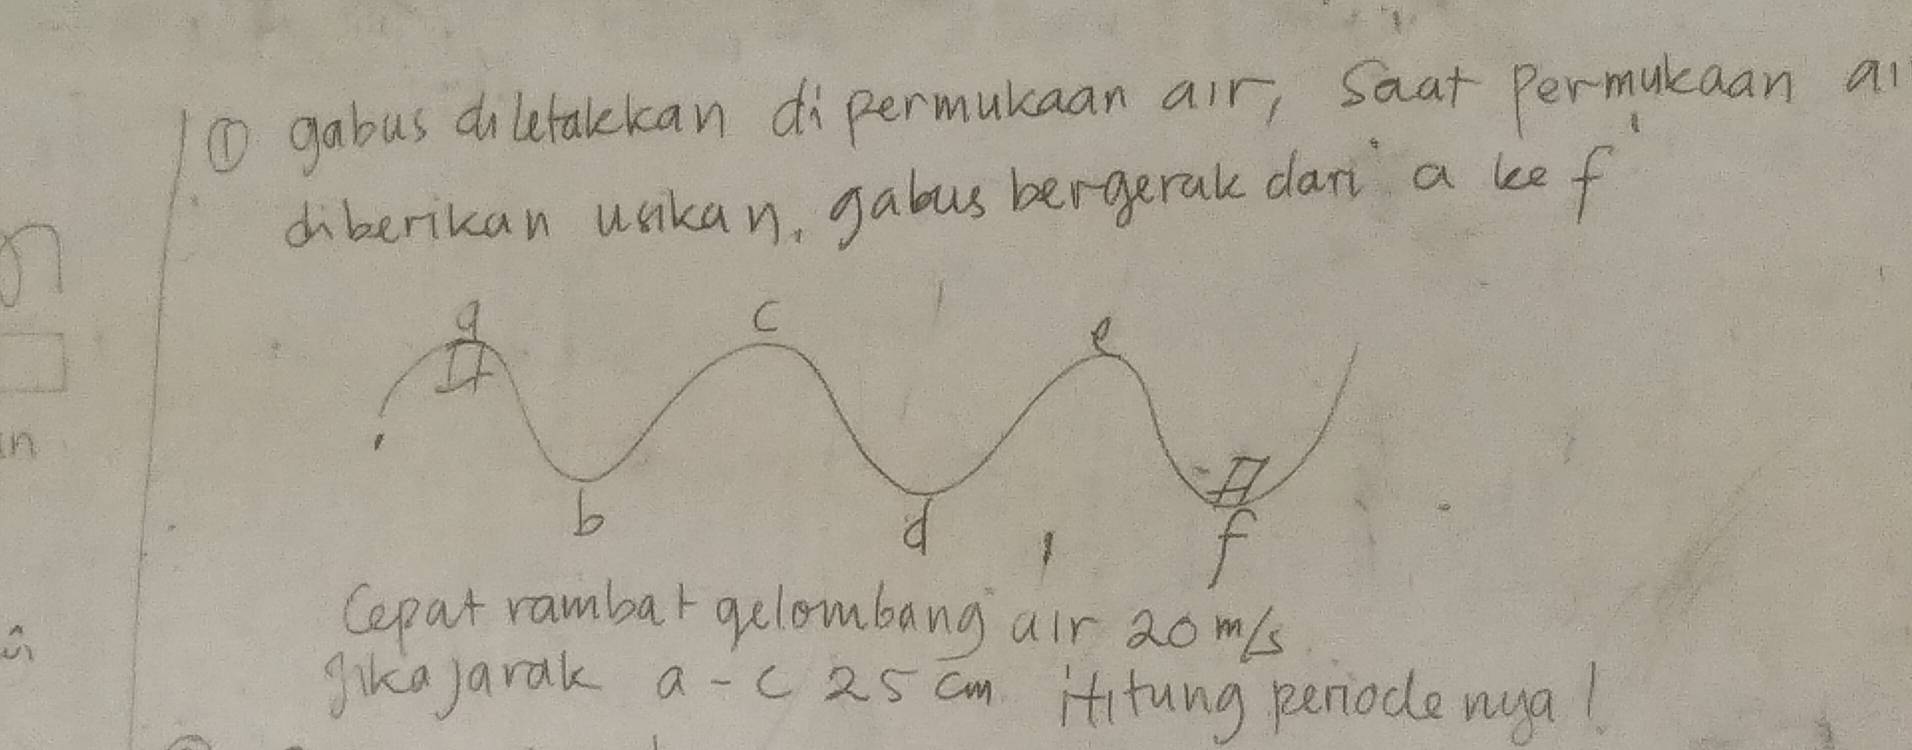 ① gabus diletakkan di permukaan air, Saat Permukaan ai
diberikan usikan. gabus bergerak dari a ke f
a c e
b d f
Cepat rambat gelombang air 20 m/s
Jika jarak a - c 25 cm Hitung periode nya!
in